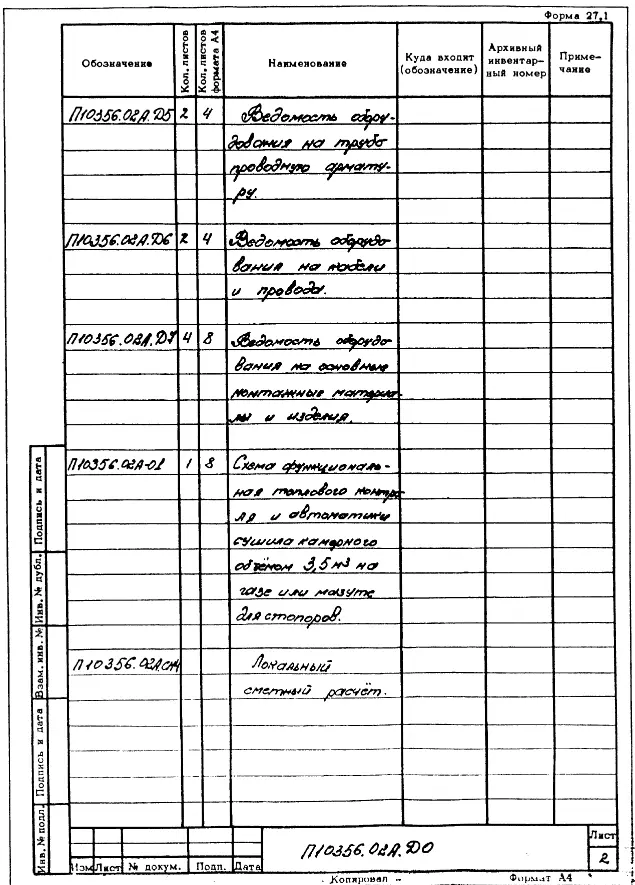 Форма 27.1
Обозначение
Кол. листов
Кол. листов формата А4
Наименование
Куда входит (обозначение)
Архивный инвентарный номер
Примечание
П10356.02А.Д5 2 4 Ведомость обору-
дования на трубо
проводную армату-
ру.
П10356.02А.Д6 2 4 Ведомость оборудо
вания на кабели
и провода.
П10356.02А.Д7 4 8 Ведомость оборудо
вания на основные
монтажные материа-
лы и изделия.
П10356.02А-01 1 8 Схема функциональ-
ная теплового контро
ля и автоматики
сушила камерного
объёмом 3,5м3 на
газе или мазуте
для стопоров.
П10356.02А Локальный
сметный расчёт.
Подпись и дата
Инв. № дубл.
Взам. инв. №
Подпись и дата
Инв. № подл.
Изм Лист № докум. Подп. Дата
П10356.02А.ДО
Лист
2
Копировал
Формат А4